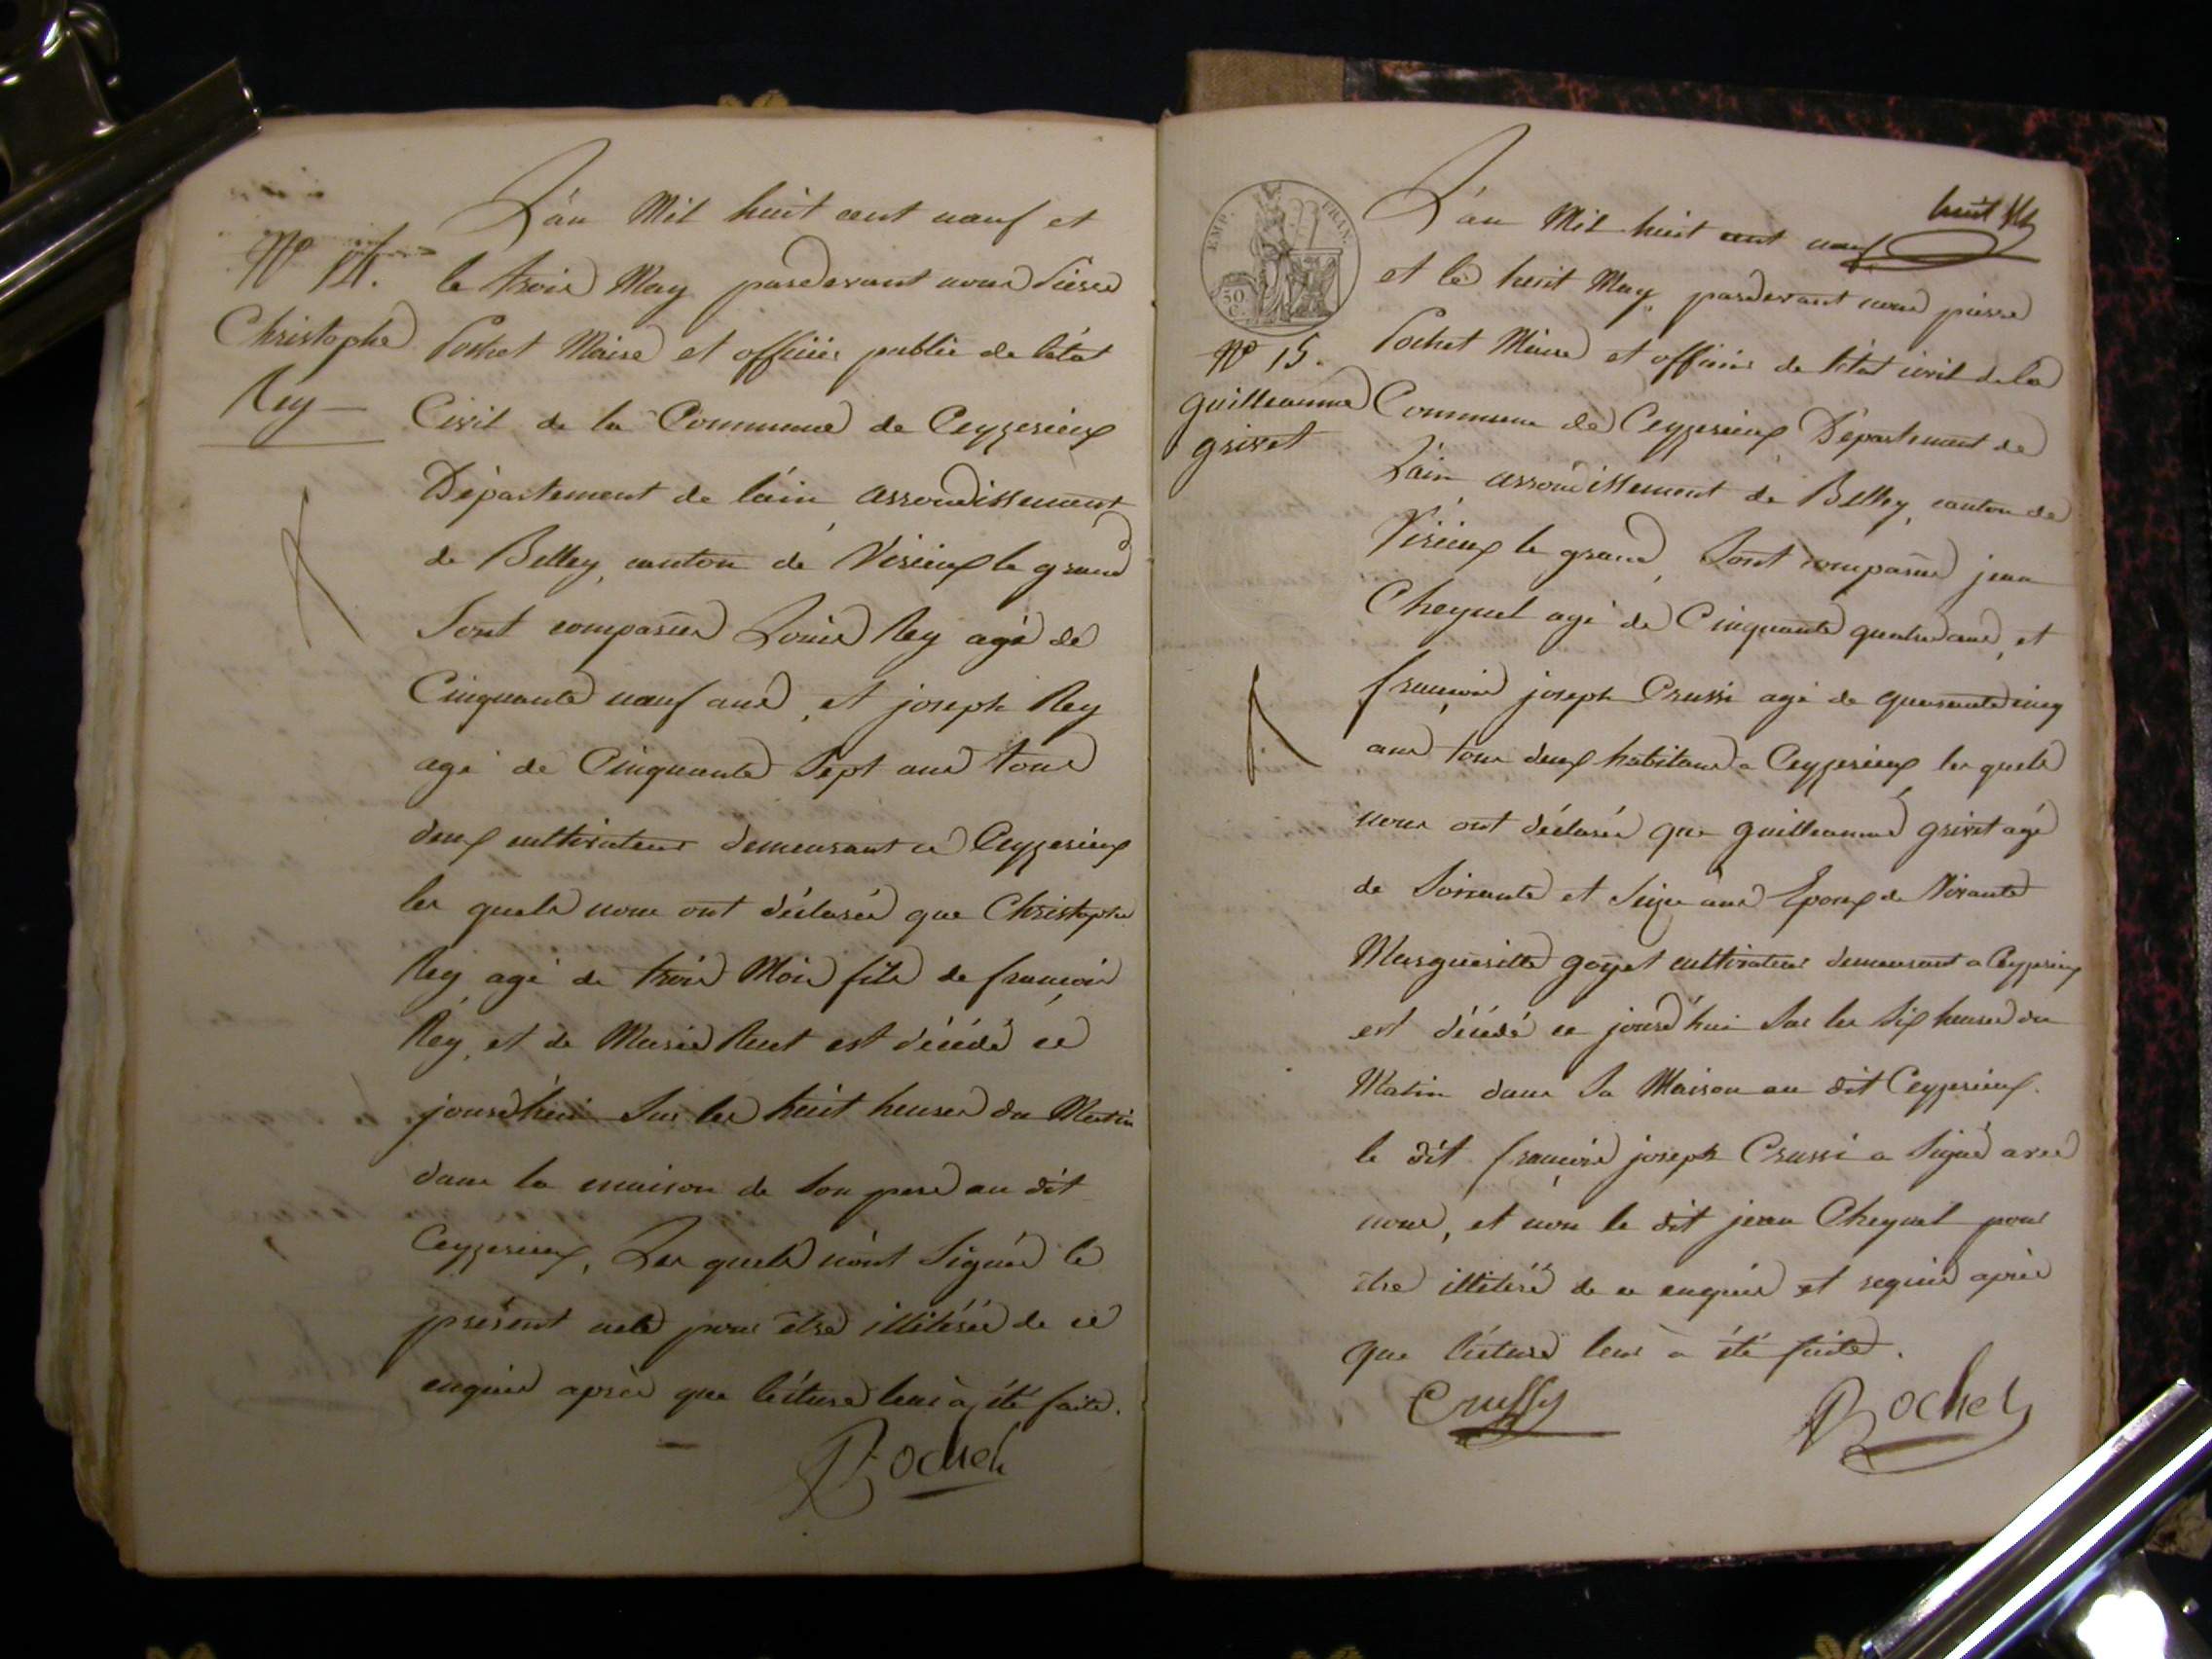 L'an Mil huit cent neuf et
N° 14. le trois May pardevant nous Pierre
Christophe Pochet Maire et officier public de l'état
Rey Civil de la Commune de Ceyzerieux
Département de l'ain arrondissement
de Belley, canton de Virieux le grand
Sont comparus Louis Rey agé de
Cinquante neuf ans, et joseph Rey
agé de Cinquante Sept ans tous
deux cultivateurs demeurant à Ceyzerieux
les quels nous ont déclarés que Christophe
Rey agé de trois Mois fils de françois
Rey, et de Marie est décédé ce
jourd'hui Sur les huit heures du Matin
dans la maison de Son pere au dit
Ceyzerieux, Les quels n'ont Signés le
présent acte pour être illitérés de ce
enquis après que lécture leur à été faite.
Pochet
huit
EMP. FRAN.
50 C.
L'an Mil huit cent neuf
et le huit May, pardevant nous pierre
N° 15. Pochet Maire et officier de l'état civil de la
guilleaume Commune de Ceyzerieux Département de
grivet L'ain, arrondissement de Belley, canton de
Virieux le grand, Sont comparus jean
Cheynel agé de Cinquante quatre ans, et
françois joseph Crussi agé de quarante cinq
ans tous deux habitans a Ceyzerieux les quels
nous ont déclarés que guilleaume grivet agé
de Soixante et Seize ans Epoux de Vivante
Margueritte goyet cultivateur demeurant a Ceyzerieux
est décédé ce jourd'hui Sur les Six heures du
Matin dans Sa Maison au dit Ceyzerieux.
le dit françois joseph Crussi a Signé avec
nous, et non le dit jean Cheynel pour
être illitéré de ce enquis et requis après
que lécture leur à été faite.
Crussy Pochet